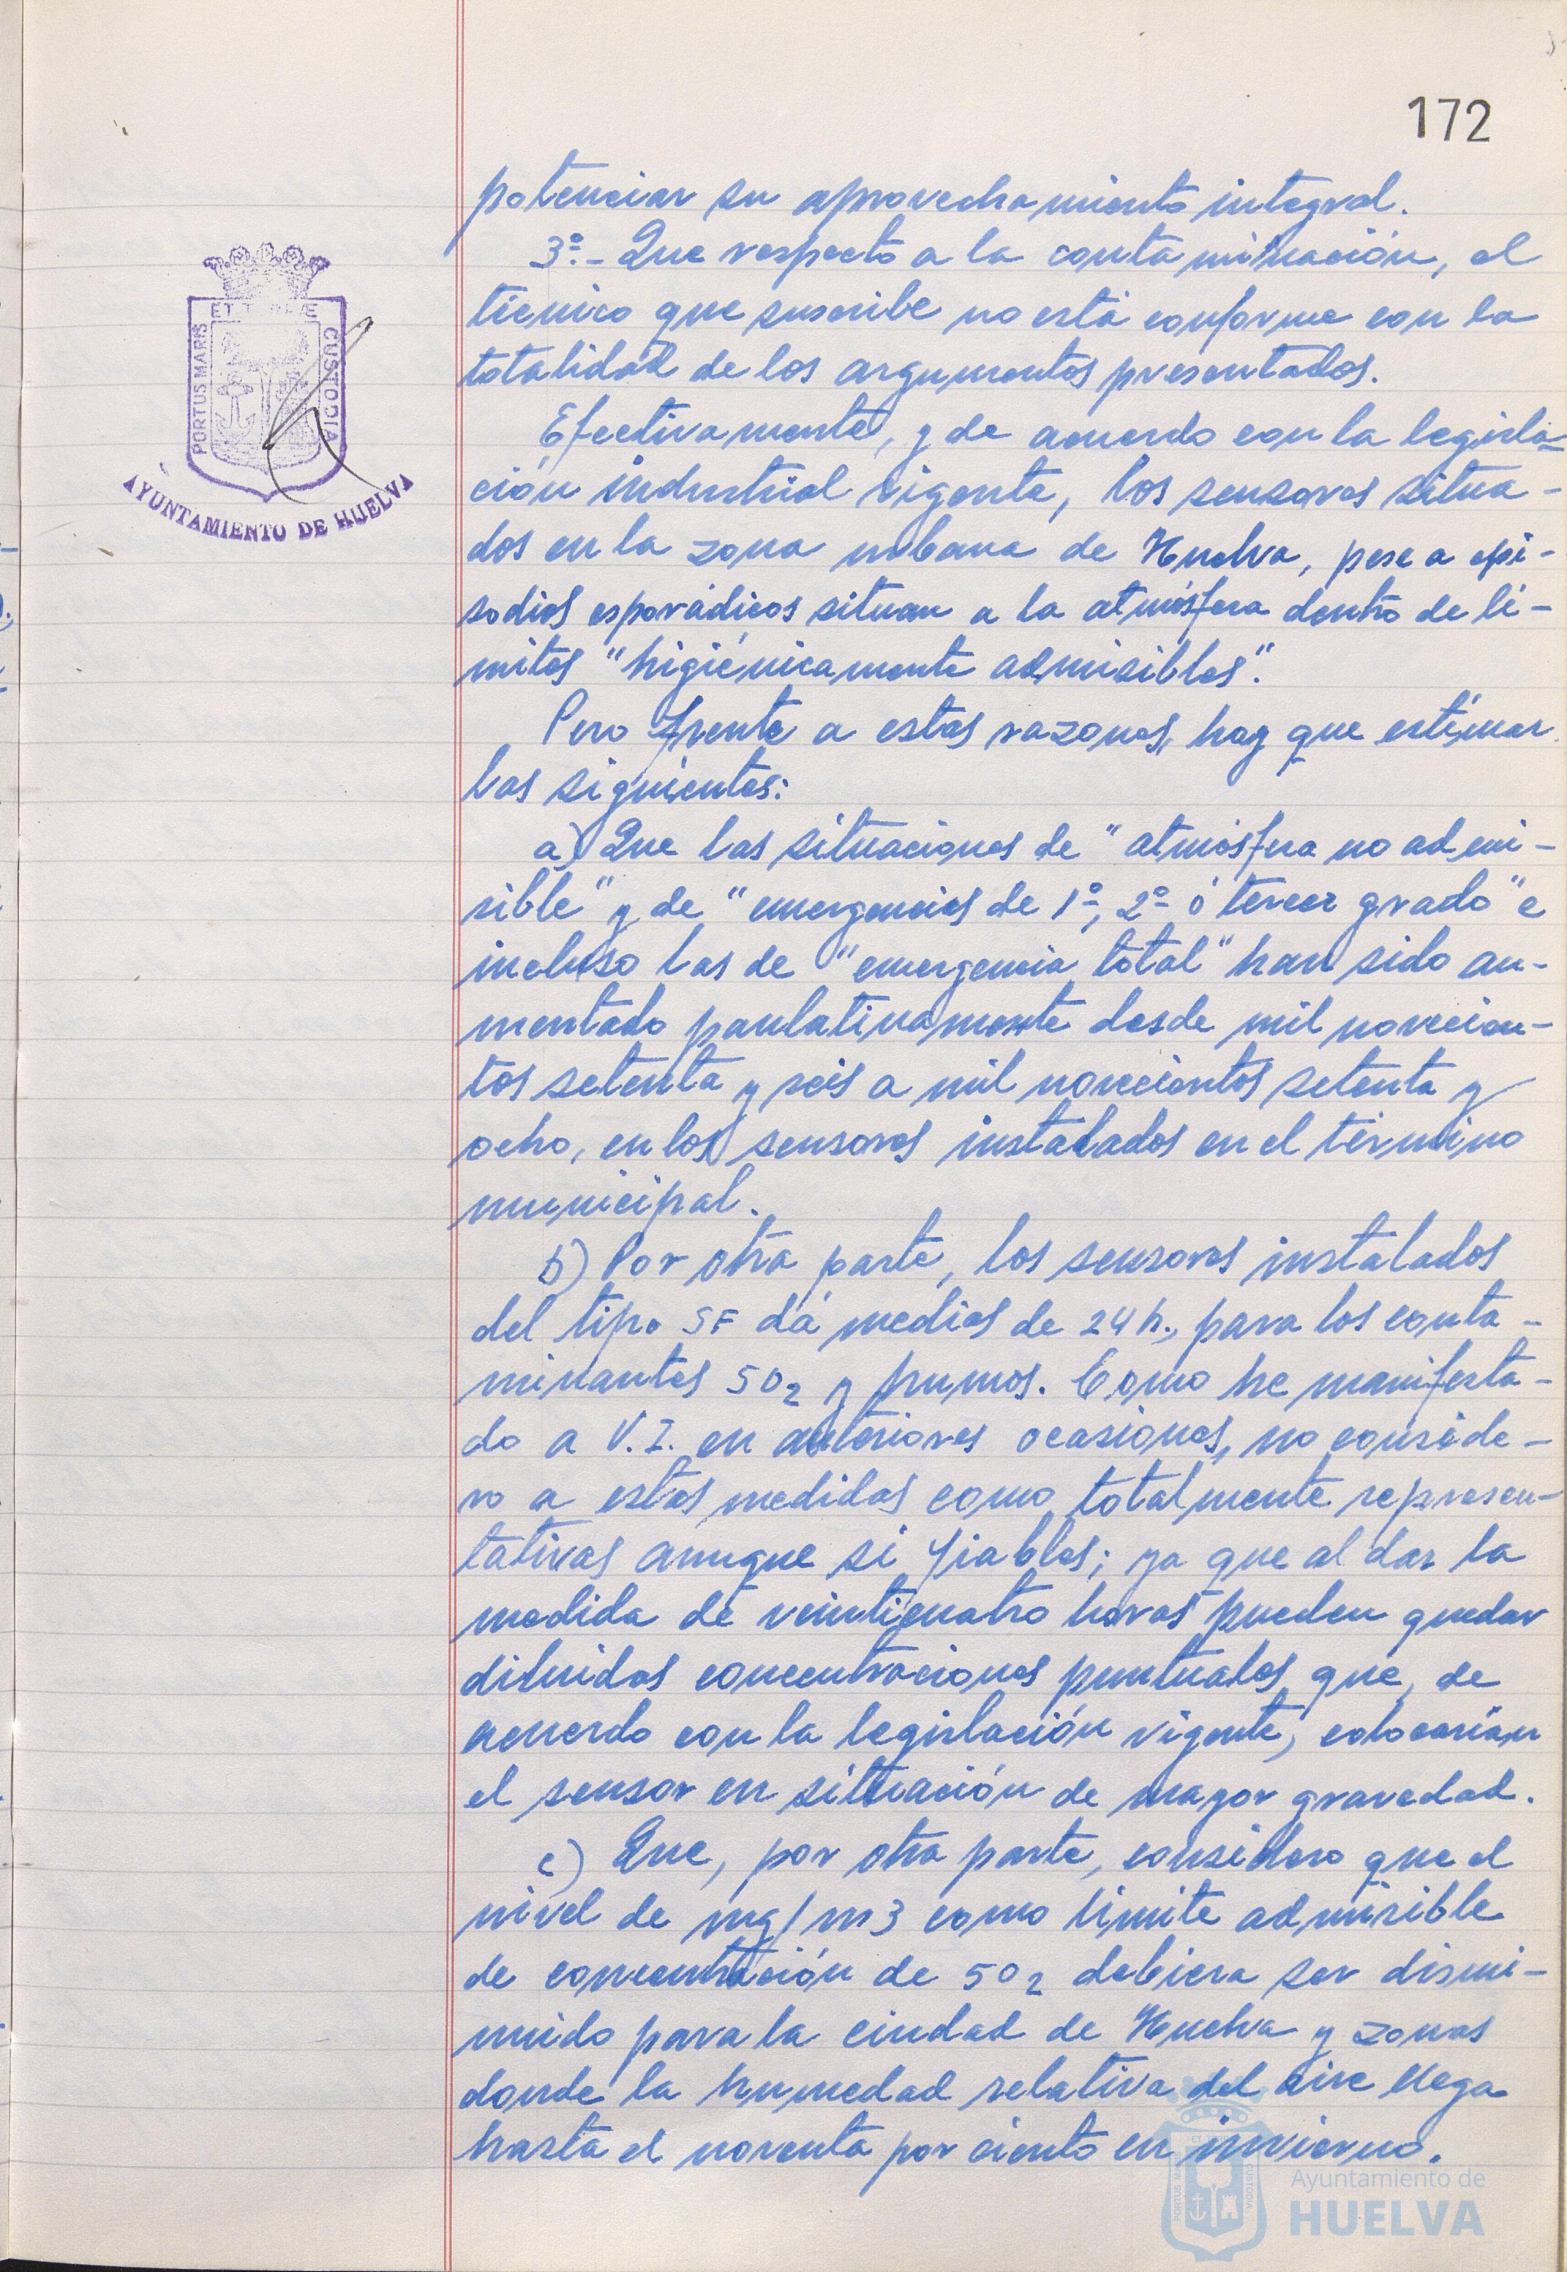 172
potenciar su aprovechamiento integral.
3º.- Que respecto a la contaminación, el
técnico que suscribe no está conforme con la
totalidad de los argumentos presentados.
Efectivamente, y de acuerdo con la legisla-
ción industrial vigente, los sensores situa-
dos en la zona urbana de Huelva, pese a epi-
sodios esporádicos situan a la atmósfera dentro de lí-
mites "higiénicamente admisibles".
Pero frente a estas razones, hay que estimar
las siguientes:
a) Que las situaciones de "atmósfera no admi-
sible" y de "emergencias de 1º, 2º ó tercer grado" e
incluso las de "emergencia total" han sido au-
mentado paulatinamente desde mil novecien-
tos setenta y seis a mil novecientos setenta y
ocho, en los sensores instalados en el término
municipal.
b) Por otra parte, los sensores instalados
del tipo SF dá medias de 24 h., para los conta-
minantes SO2 y humos. Como he manifesta-
do a V.I. en anteriores ocasiones, no conside-
ro a estas medidas como totalmente represen-
tativas aunque si fiables; ya que al dar la
medida de veinticuatro horas pueden quedar
diluidas concentraciones puntuales que, de
acuerdo con la legislación vigente, colocarían
el sensor en situación de mayor gravedad.
c) Que, por otra parte, considero que el
nivel de mg/m3 como límite admisible
de concentración de SO2 debiera ser dismi-
nuido para la ciudad de Huelva y zonas
donde la humedad relativa del aire llega
hasta el noventa por ciento en invierno.
PORTUS MARIS
CUSTODIA
AYUNTAMIENTO DE HUELVA
Ayuntamiento de
HUELVA